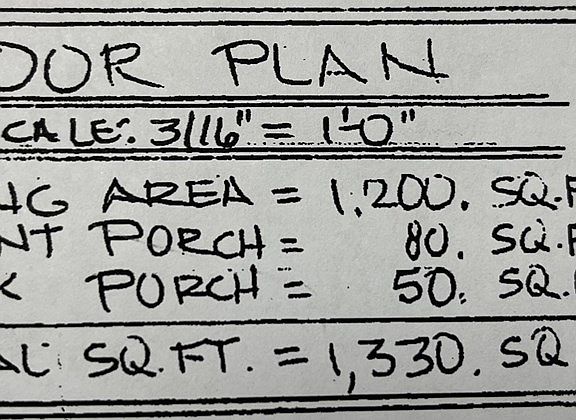 OOR PLAN
CALE: 3/16" = 1'-0"
NG AREA = 1,200. SQ.F
NT PORCH = 80. SQ.F
K PORCH = 50. SQ.
AL SQ.FT. = 1,330. SQ